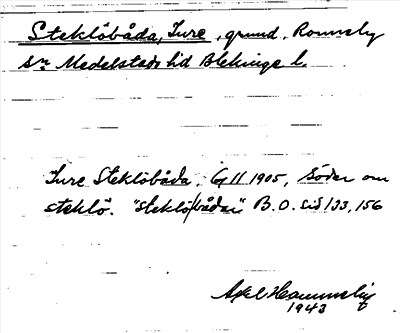 Steklöbåda, Ture, grund. Ronneby
sn. Medelstads hd Blekinge l.
Ture Steklöbåda. G II 1905, söder om
steklö. "steklö/bådan" B.O. sid 133, 156
Axel
1943